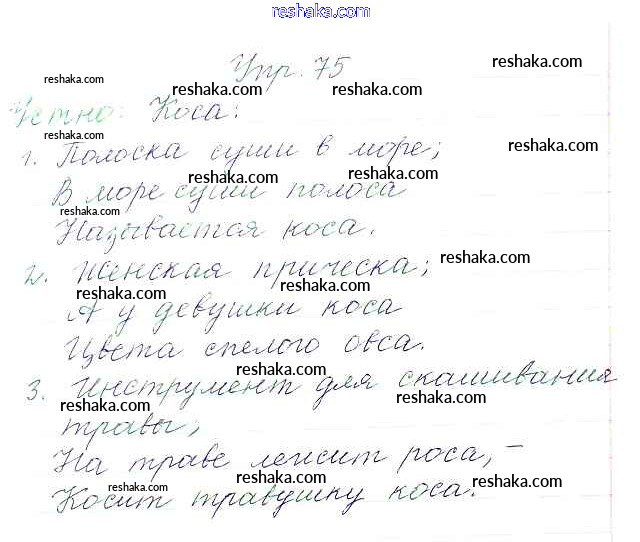 reshaka.com
Упр. 75
reshaka.com reshaka.com reshaka.com reshaka.com
Устно: Коса:
reshaka.com reshaka.com
1. Полоска суши в море;
reshaka.com reshaka.com
В море суши полоса
reshaka.com
Называется коса.
reshaka.com
2. Женская прическа;
reshaka.com reshaka.com
А у девушки коса
Цвета спелого овса.
reshaka.com reshaka.com
3. Инструмент для скашивания
reshaka.com reshaka.com
травы;
На траве лежит роса, –
reshaka.com reshaka.com reshaka.com
Косит травушку коса.